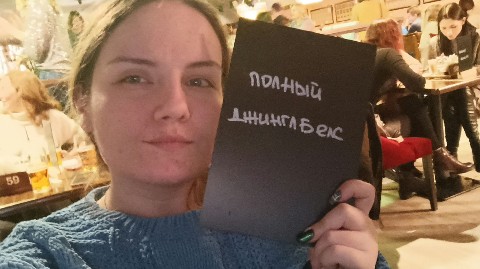 ПОЛНЫЙ
ДЖИНГЛБЕЛС
59